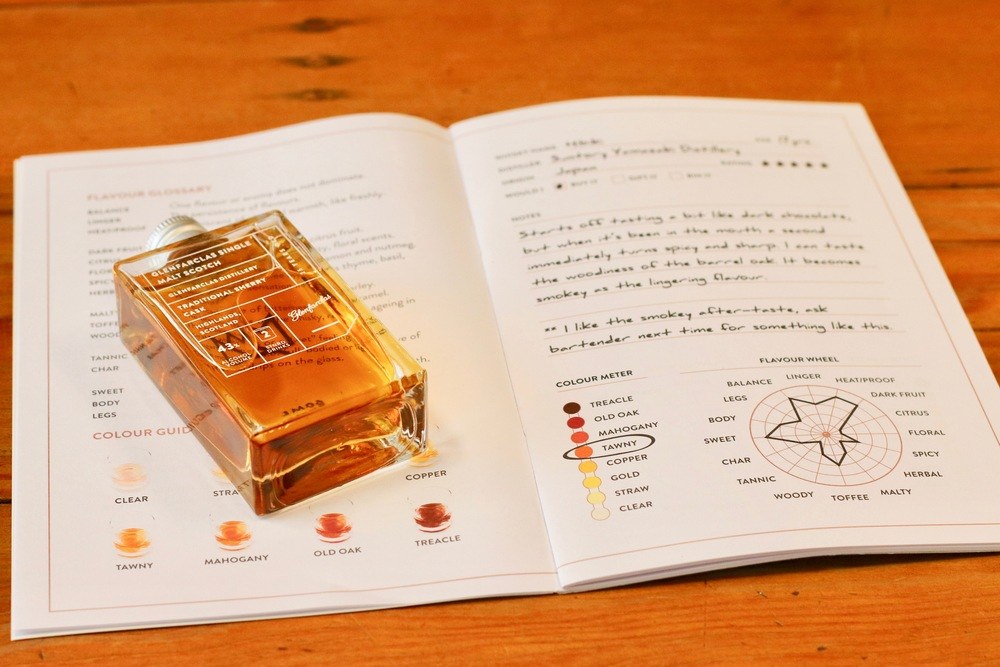 FLAVOUR GLOSSARY
BALANCE One flavour or aroma does not dominate.
LINGER persistence of flavours.
HEATPROOF warmth, like freshly
DARK FRUIT fruit.
floral scents.
and nutmeg.
thyme, basil,
MALT
TOFFEE
WOOD ageing in
TANNIC
CHAR
SWEET
BODY
LEGS on the glass.
GLENFARCLAS SINGLE
MALT SCOTCH
GLENFARCLAS DISTILLERY
TRADITIONAL SHERRY
CASK
HIGHLANDS,
SCOTLAND
Glenfarclas
43%
ALCOHOL
VOLUME
2
DRINKS
50ML
COLOUR GUIDE
CLEAR
COPPER
TAWNY
MAHOGANY
OLD OAK
TREACLE
Hibiki 17 yrs
DISTILLER Suntory Yamazaki Distillery
ORIGIN Japan RATING ★★★★★
WOULD I BUY IT GIFT IT BIN IT
NOTES
Starts off tasting a bit like dark chocolate,
but when it's been in the mouth a second
immediately turns spicy and sharp. I can taste
the woodiness of the barrel oak. It becomes
smokey as the lingering flavour.
** I like the smokey after-taste, ask
bartender next time for something like this.
COLOUR METER
TREACLE
OLD OAK
MAHOGANY
TAWNY
COPPER
GOLD
STRAW
CLEAR
FLAVOUR WHEEL
LINGER
HEAT/PROOF
DARK FRUIT
CITRUS
FLORAL
SPICY
HERBAL
MALTY
TOFFEE
WOODY
TANNIC
CHAR
SWEET
BODY
LEGS
BALANCE